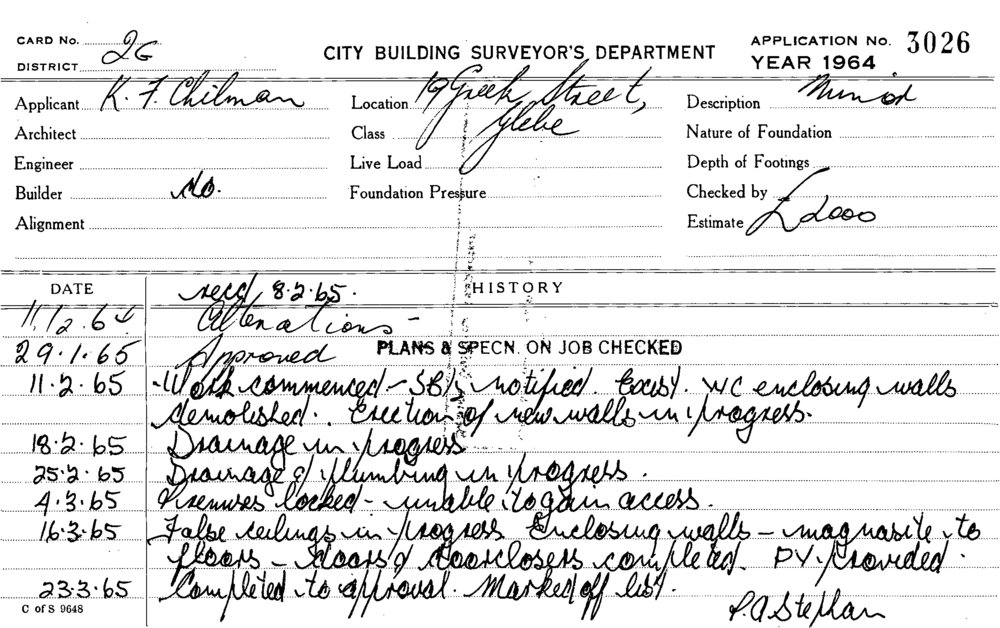 CARD No. 2G
DISTRICT
CITY BUILDING SURVEYOR'S DEPARTMENT
APPLICATION No. 3026
YEAR 1964
Applicant K. F. Chilman
Location 19 Greek Street,
Glebe
Description Minor
Architect
Class
Nature of Foundation
Engineer
Live Load
Depth of Footings
Builder do.
Foundation Pressure
Checked by
Alignment
Estimate £2000
DATE
HISTORY
recd 8.2.65.
11/2.64 Alterations -
29.1.65 Approved PLANS & SPECN. ON JOB CHECKED
11.2.65 Work commenced - SB/s notified. Exist. WC enclosing walls
demolished. Erection of new walls in progress.
18.2.65 Drainage in progress
25.2.65 Drainage & plumbing in progress.
4.3.65 Premises locked - unable to gain access.
16.3.65 False ceilings in progress. Enclosing walls - magnasite to
floors - doors & doorclosers completed. PV. provided.
23.3.65 Completed to approval. Marked off list.
C of S 9648
P.A Stephan